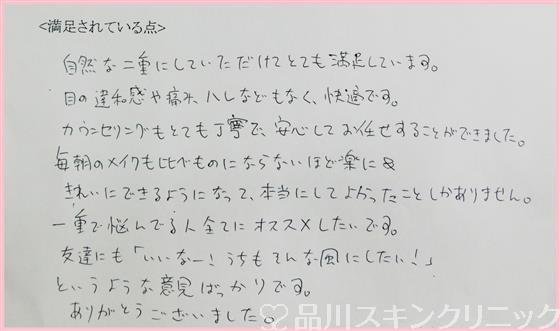 <満足されている点>
自然な二重にしていただけてとても満足しています。
目の違和感や痛み、ハレなどもなく、快適です。
カウンセリングもとても丁寧で、安心してお任せすることができました。
毎朝のメイクも比べものにならないほど楽に&
きれいにできるようになって、本当にしてよかったことしかありません。
一重で悩んでる人全てにオススメしたいです。
友達にも「いいなー!うちもそんな風にしたい!」
というような意見ばっかりです。
ありがとうございました。
品川スキンクリニック